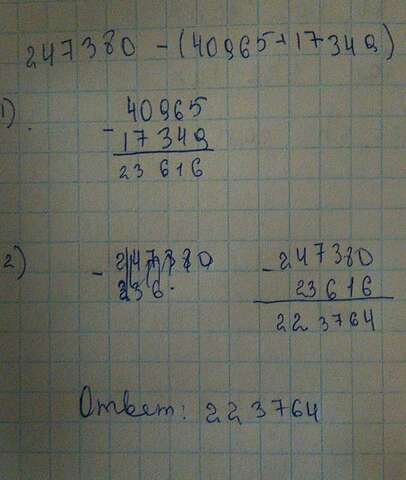 247380 - (40965+17349)
1)
40965
- 17349
23616
2)
- 247380
236
- 247380
23616
223764
Ответ: 223764